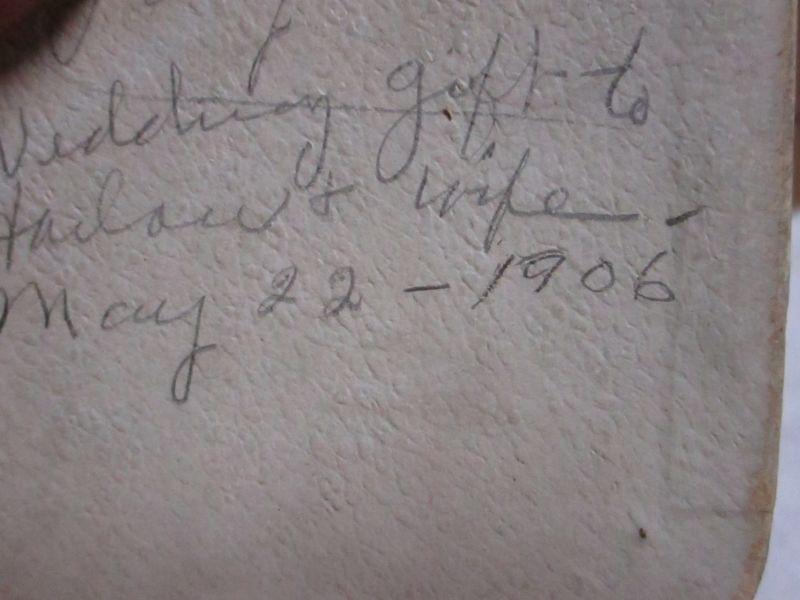 Wedding gift to
Harlow & wife -
May 22 - 1906